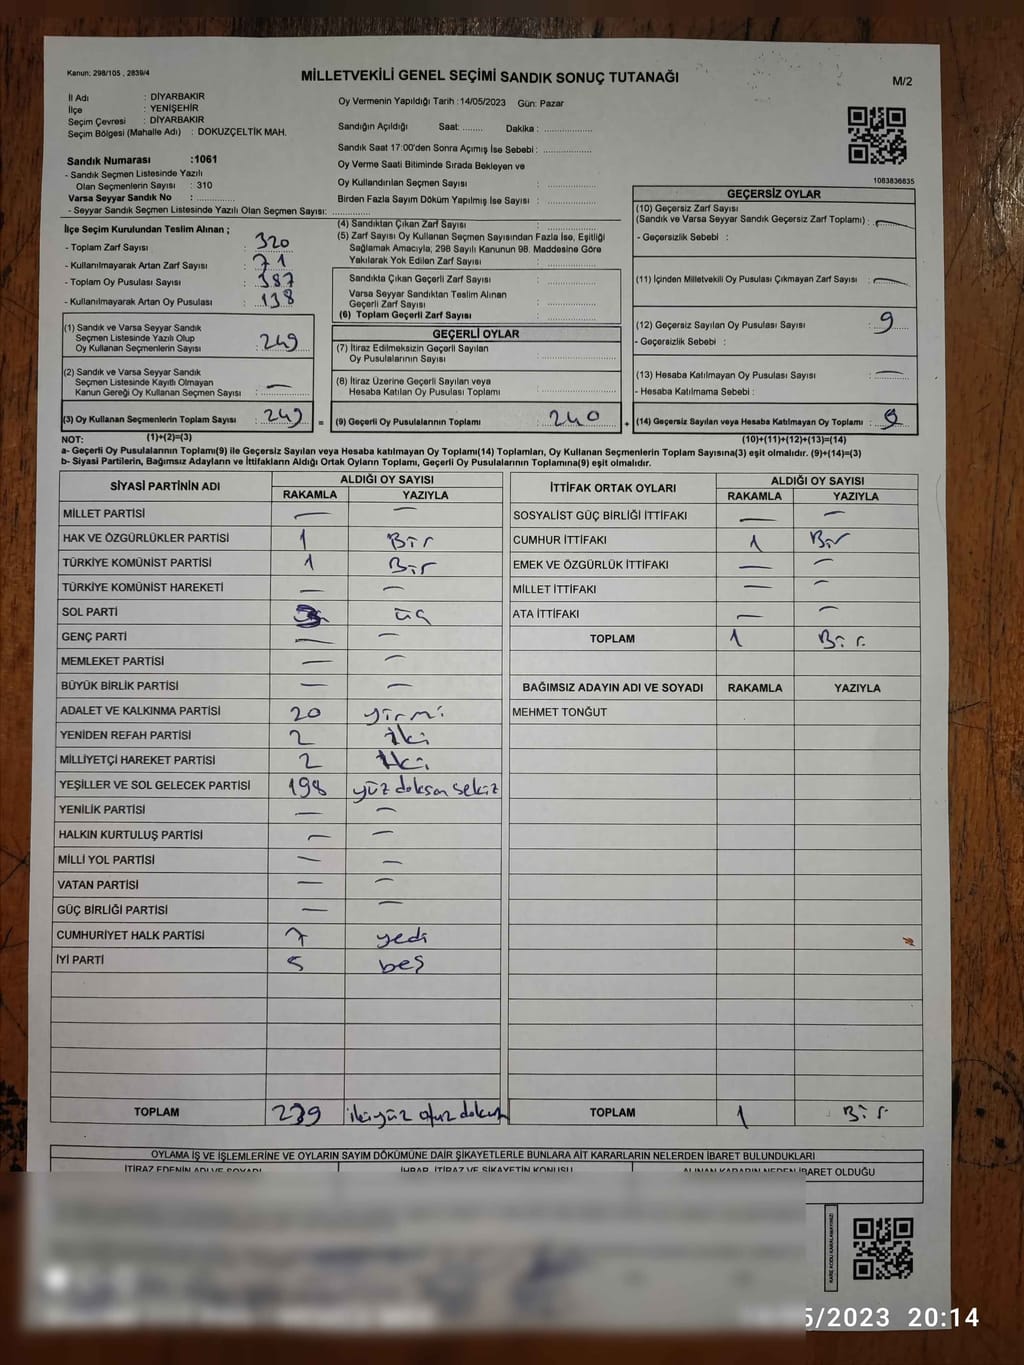 Kanun: 298/105 , 2839/4
MİLLETVEKİLİ GENEL SEÇİMİ SANDIK SONUÇ TUTANAĞI
M/2
İl Adı : DİYARBAKIR
İlçe : YENİŞEHİR
Seçim Çevresi : DİYARBAKIR
Seçim Bölgesi (Mahalle Adı) : DOKUZÇELTİK MAH.
Sandık Numarası :1061
- Sandık Seçmen Listesinde Yazılı
Olan Seçmenlerin Sayısı : 310
Varsa Seyyar Sandık No :
- Seyyar Sandık Seçmen Listesinde Yazılı Olan Seçmen Sayısı:
Oy Vermenin Yapıldığı Tarih :14/05/2023 Gün: Pazar
Sandığın Açıldığı Saat: ........ Dakika :
Sandık Saat 17:00'den Sonra Açımış İse Sebebi :
Oy Verme Saati Bitiminde Sırada Bekleyen ve
Oy Kullandırılan Seçmen Sayısı :
Birden Fazla Sayım Döküm Yapılmış İse Sayısı :
1083836835
İlçe Seçim Kurulundan Teslim Alınan ;
- Toplam Zarf Sayısı : 320
- Kullanılmayarak Artan Zarf Sayısı : 71
- Toplam Oy Pusulası : 387
- Kullanılmayarak Artan Oy Pusulası : 138
(1) Sandık ve Varsa Seyyar Sandık
Seçmen Listesinde Yazılı Olup
Oy Kullanan Seçmenlerin Sayısı : 249
(2) Sandık ve Varsa Seyyar Sandık
Seçmen Listesinde Kayıtlı Olmayan
Kanun Gereği Oy Kullanan Seçmen Sayısı : —
(3) Oy Kullanan Seçmenlerin Toplam Sayısı : 249 =
(4) Sandıktan Çıkan Zarf Sayısı :
(5) Zarf Sayısı Oy Kullanan Seçmen Sayısından Fazla İse, Eşitliği
Sağlamak Amacıyla, 298 Sayılı Kanunun 98. Maddesine Göre
Yakılarak Yok Edilen Zarf Sayısı :
Sandıkta Çıkan Geçerli Zarf Sayısı :
Varsa Seyyar Sandıktan Teslim Alınan
Geçerli Zarf Sayısı :
(6) Toplam Geçerli Zarf Sayısı :
GEÇERLİ OYLAR
(7) İtiraz Edilmeksizin Geçerli Sayılan
Oy Pusulalarının Sayısı :
(8) İtiraz Üzerine Geçerli Sayılan veya
Hesaba Katılan Oy Pusulası Toplamı :
(9) Geçerli Oy Pusulalarının Toplamı : 240 +
GEÇERSİZ OYLAR
(10) Geçersiz Zarf Sayısı
(Sandık ve Varsa Seyyar Sandık Geçersiz Zarf Toplamı) : —
- Geçersizlik Sebebi :
(11) İçinden Milletvekili Oy Pusulası Çıkmayan Zarf Sayısı : —
(12) Geçersiz Sayılan Oy Pusulası Sayısı : 9
- Geçersizlik Sebebi :
(13) Hesaba Katılmayan Oy Pusulası Sayısı : —
- Hesaba Katılmama Sebebi :
(14) Geçersiz Sayılan veya Hesaba Katılmayan Oy Toplamı : 9
NOT: (1)+(2)=(3) (10)+(11)+(12)+(13)=(14)
a- Geçerli Oy Pusulaları Toplamı(9) ile Geçersiz Sayılan veya Hesaba katılmayan Oy Toplamı(14) Toplamları, Oy Kullanan Seçmenlerin Toplam Sayısına(3) eşit olmalıdır. (9)+(14)=(3)
b- Siyasi Partilerin, Bağımsız Adayların ve İttifakların Aldığı Ortak Oyların Toplamı, Geçerli Oy Pusulalarının Toplamına(9) eşit olmalıdır.
SİYASİ PARTİNİN ADI ALDIĞI OY SAYISI
RAKAMLA YAZIYLA
MİLLET PARTİSİ — —
HAK VE ÖZGÜRLÜKLER PARTİSİ 1 Bir
TÜRKİYE KOMÜNİST PARTİSİ 1 Bir
TÜRKİYE KOMÜNİST HAREKETİ — —
SOL PARTİ 3 üç
GENÇ PARTİ — —
MEMLEKET PARTİSİ — —
BÜYÜK BİRLİK PARTİSİ — —
ADALET VE KALKINMA PARTİSİ 20 yirmi
YENİDEN REFAH PARTİSİ 2 İki
MİLLİYETÇİ HAREKET PARTİSİ 2 İki
YEŞİLLER VE SOL GELECEK PARTİSİ 198 yüz doksan sekiz
YENİLİK PARTİSİ — —
HALKIN KURTULUŞ PARTİSİ — —
MİLLİ YOL PARTİSİ — —
VATAN PARTİSİ — —
GÜÇ BİRLİĞİ PARTİSİ — —
CUMHURİYET HALK PARTİSİ 7 yedi
İYİ PARTİ 5 beş
TOPLAM 239 ikiyüz otuz dokuz
İTTİFAK ORTAK OYLARI ALDIĞI OY SAYISI
RAKAMLA YAZIYLA
SOSYALİST GÜÇ BİRLİĞİ İTTİFAKI — —
CUMHUR İTTİFAKI 1 Bir
EMEK VE ÖZGÜRLÜK İTTİFAKI — —
MİLLET İTTİFAKI — —
ATA İTTİFAKI — —
TOPLAM 1 Bir
BAĞIMSIZ ADAYIN ADI VE SOYADI RAKAMLA YAZIYLA
MEHMET TONĞUT
TOPLAM 1 Bir
OYLAMA İŞ VE İŞLEMLERİNE VE OYLARIN SAYIM DÖKÜMÜNE DAİR ŞİKAYETLERLE BUNLARA AİT KARARLARIN NELERDEN İBARET BULUNDUKLARI
İTİRAZ EDENİN ADI VE SOYADI İHBAR, İTİRAZ VE ŞİKAYETİN KONUSU ALINAN KARARIN NEDEN İBARET OLDUĞU
KARE KODU KARALAMAYINIZ!
5/2023 20:14